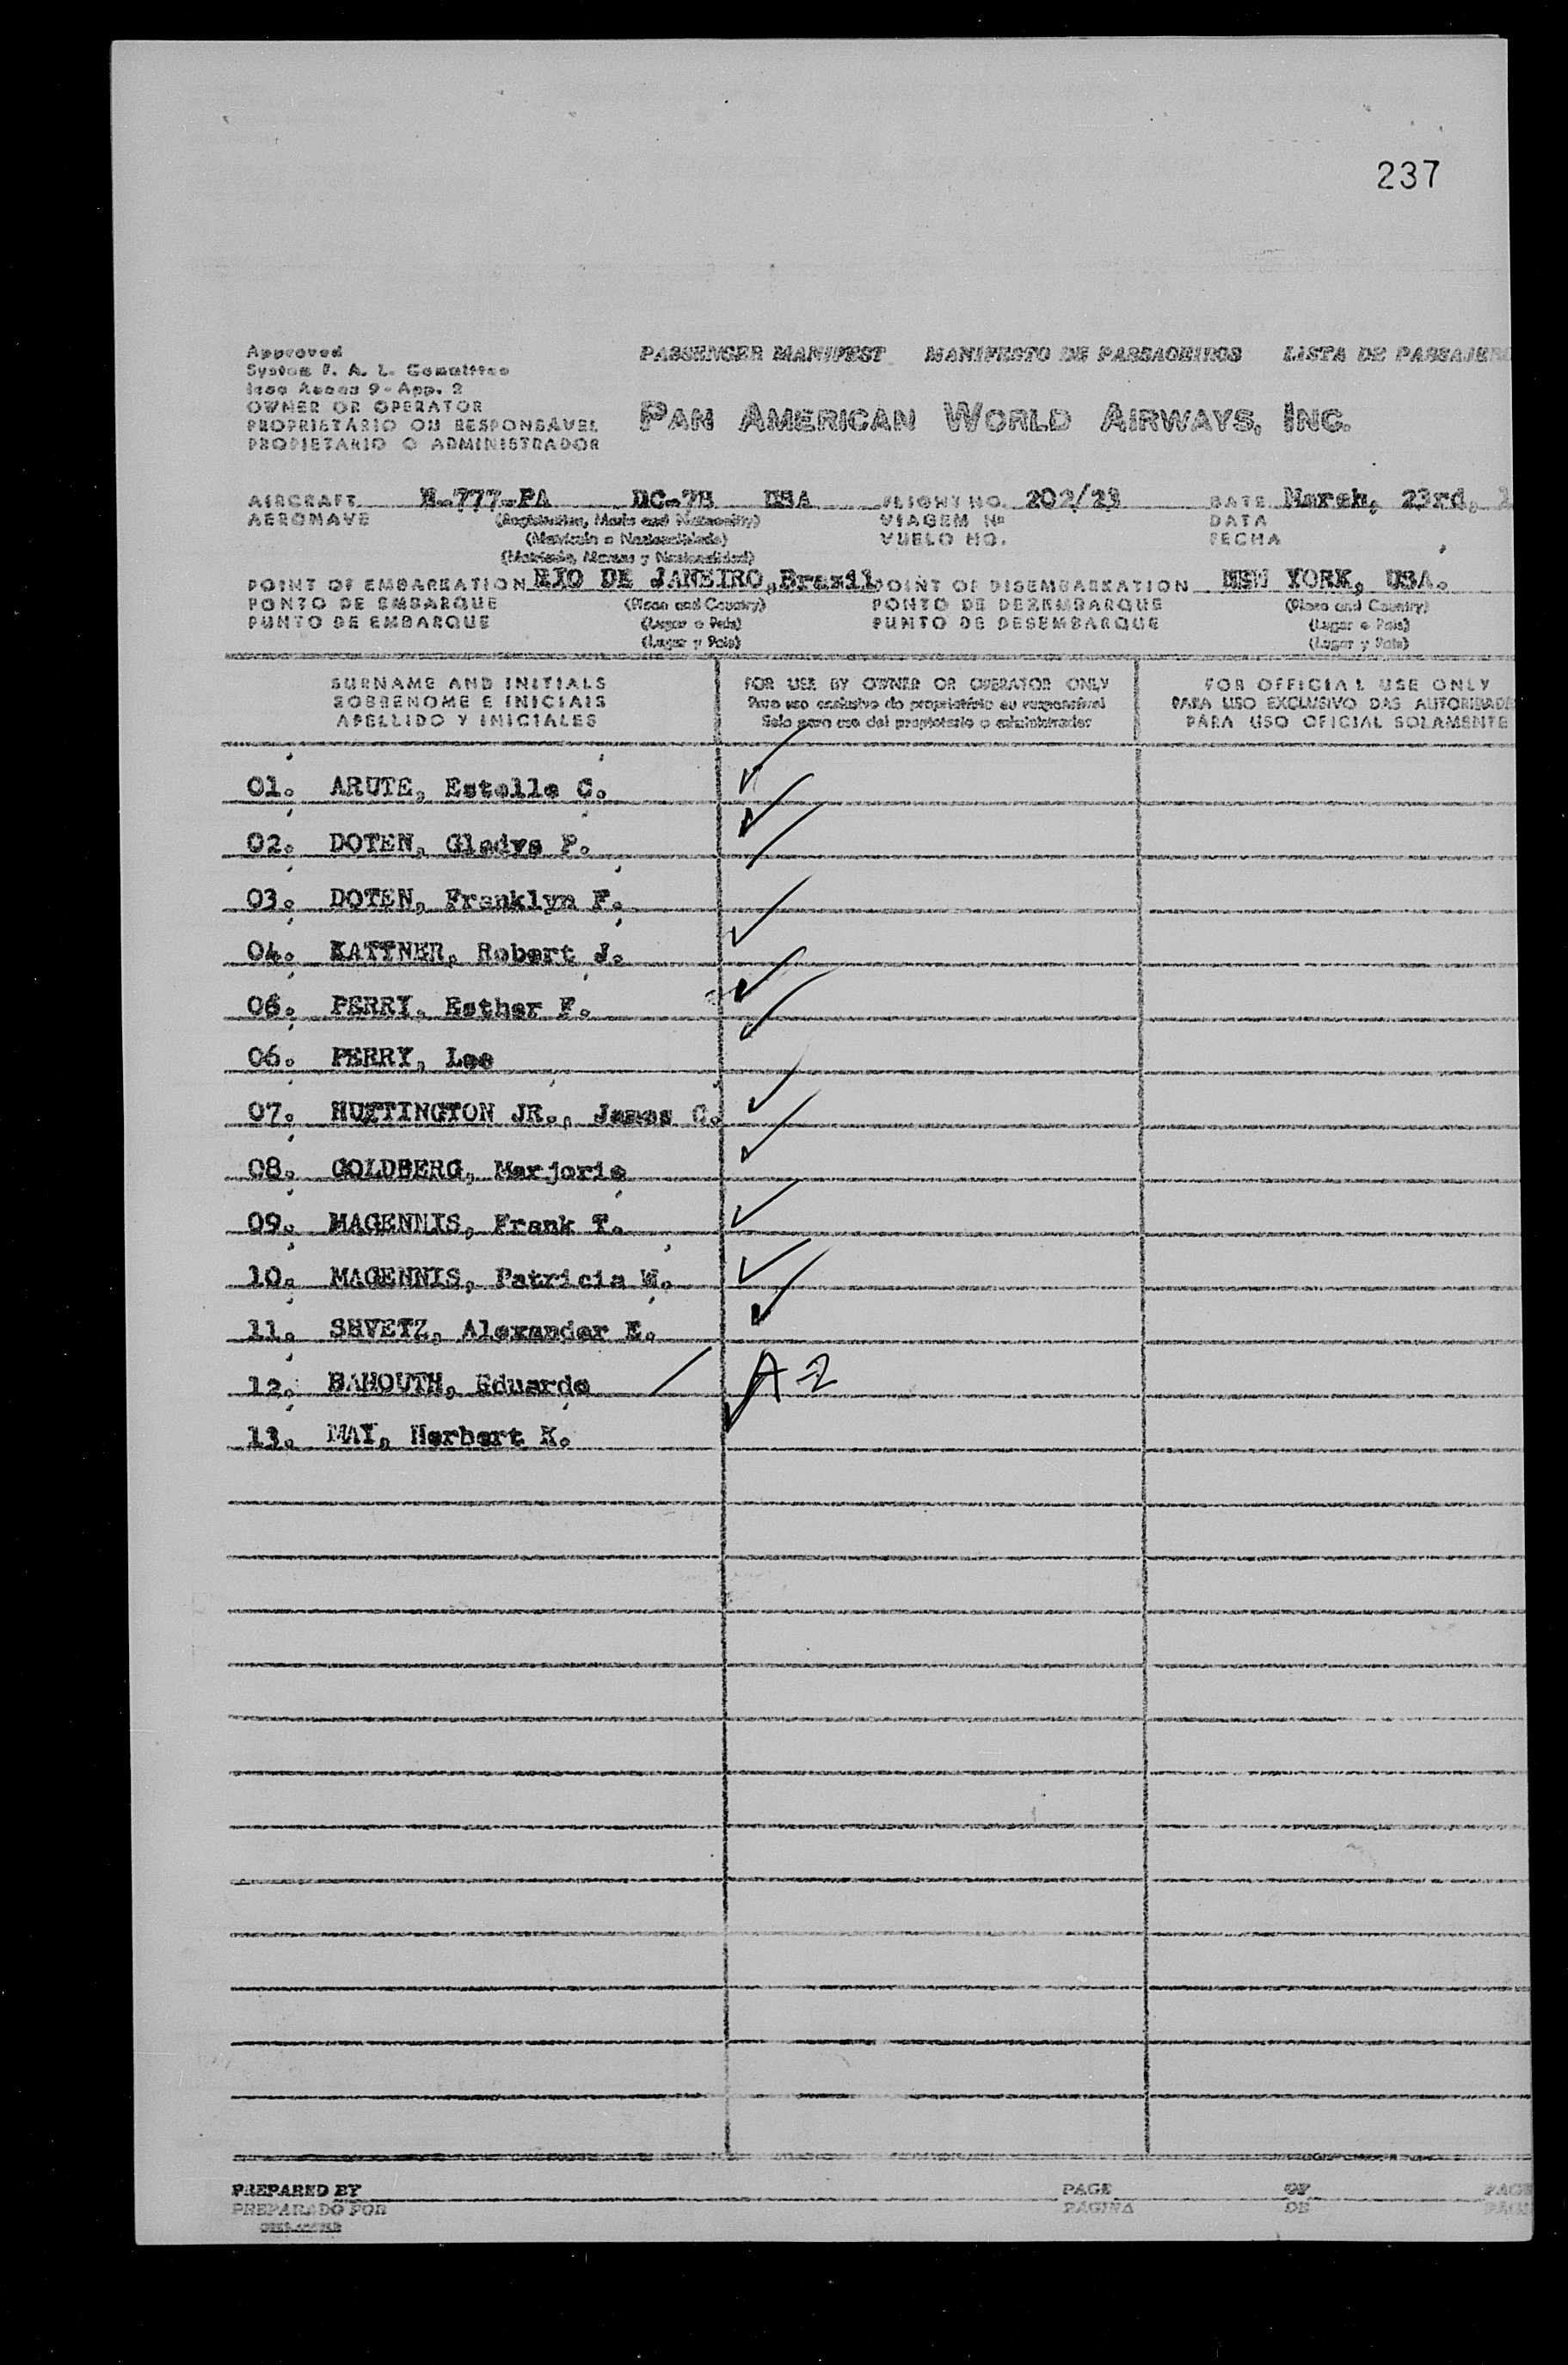 237
Approved
System F. A. L. Committee
Icao Annex 9 - App. 2
OWNER OR OPERATOR
PROPRIETÁRIO OU RESPONSÁVEL
PROPIETARIO O ADMINISTRADOR
PASSENGER MANIFEST MANIFESTO DE PASSAGEIROS LISTA DE PASSAJERO
PAN AMERICAN WORLD AIRWAYS, INC.
AIRCRAFT N-777-PA DC-7B USA FLIGHT NO. 202/23 DATE March, 23rd, 1
AERONAVE (Registration, Marks and Nationality) VIAGEM Nº DATA
(Matrícula e Nacionalidade) VUELO NO. FECHA
(Matrícula, Marcas y Nacionalidad)
POINT OF EMBARKATION RIO DE JANEIRO, Brazil POINT OF DISEMBARKATION NEW YORK, USA.
PONTO DE EMBARQUE (Place and Country) PONTO DE DEZEMBARQUE (Place and Country)
PUNTO DE EMBARQUE (Lugar e País) PUNTO DE DESEMBARQUE (Lugar e País)
(Lugar y País) (Lugar y País)
SURNAME AND INITIALS FOR USE BY OWNER OR OPERATOR ONLY FOR OFFICIAL USE ONLY
SOBRENOME E INICIAIS Para uso exclusivo do proprietário ou responsável PARA USO EXCLUSIVO DAS AUTORIDADE
APELLIDO Y INICIALES Solo para uso del propietario o administrador PARA USO OFICIAL SOLAMENTE
01. ARUTE, Estelle C.
02. DOTEN, Gladys P.
03. DOTEN, Franklyn F.
04. KATTNER, Robert J.
05. PERRY, Esther F.
06. PERRY, Lee
07. HUNTINGTON JR., James C.
08. GOLDBERG, Marjorie
09. MAGENNIS, Frank T.
10. MAGENNIS, Patricia W.
11. SHVETZ, Alexander E.
12. BAHOUTH, Eduardo A-2
13. MAY, Herbert K.
PREPARED BY PAGE OF PAGE
PREPARADO POR PAGINA DE